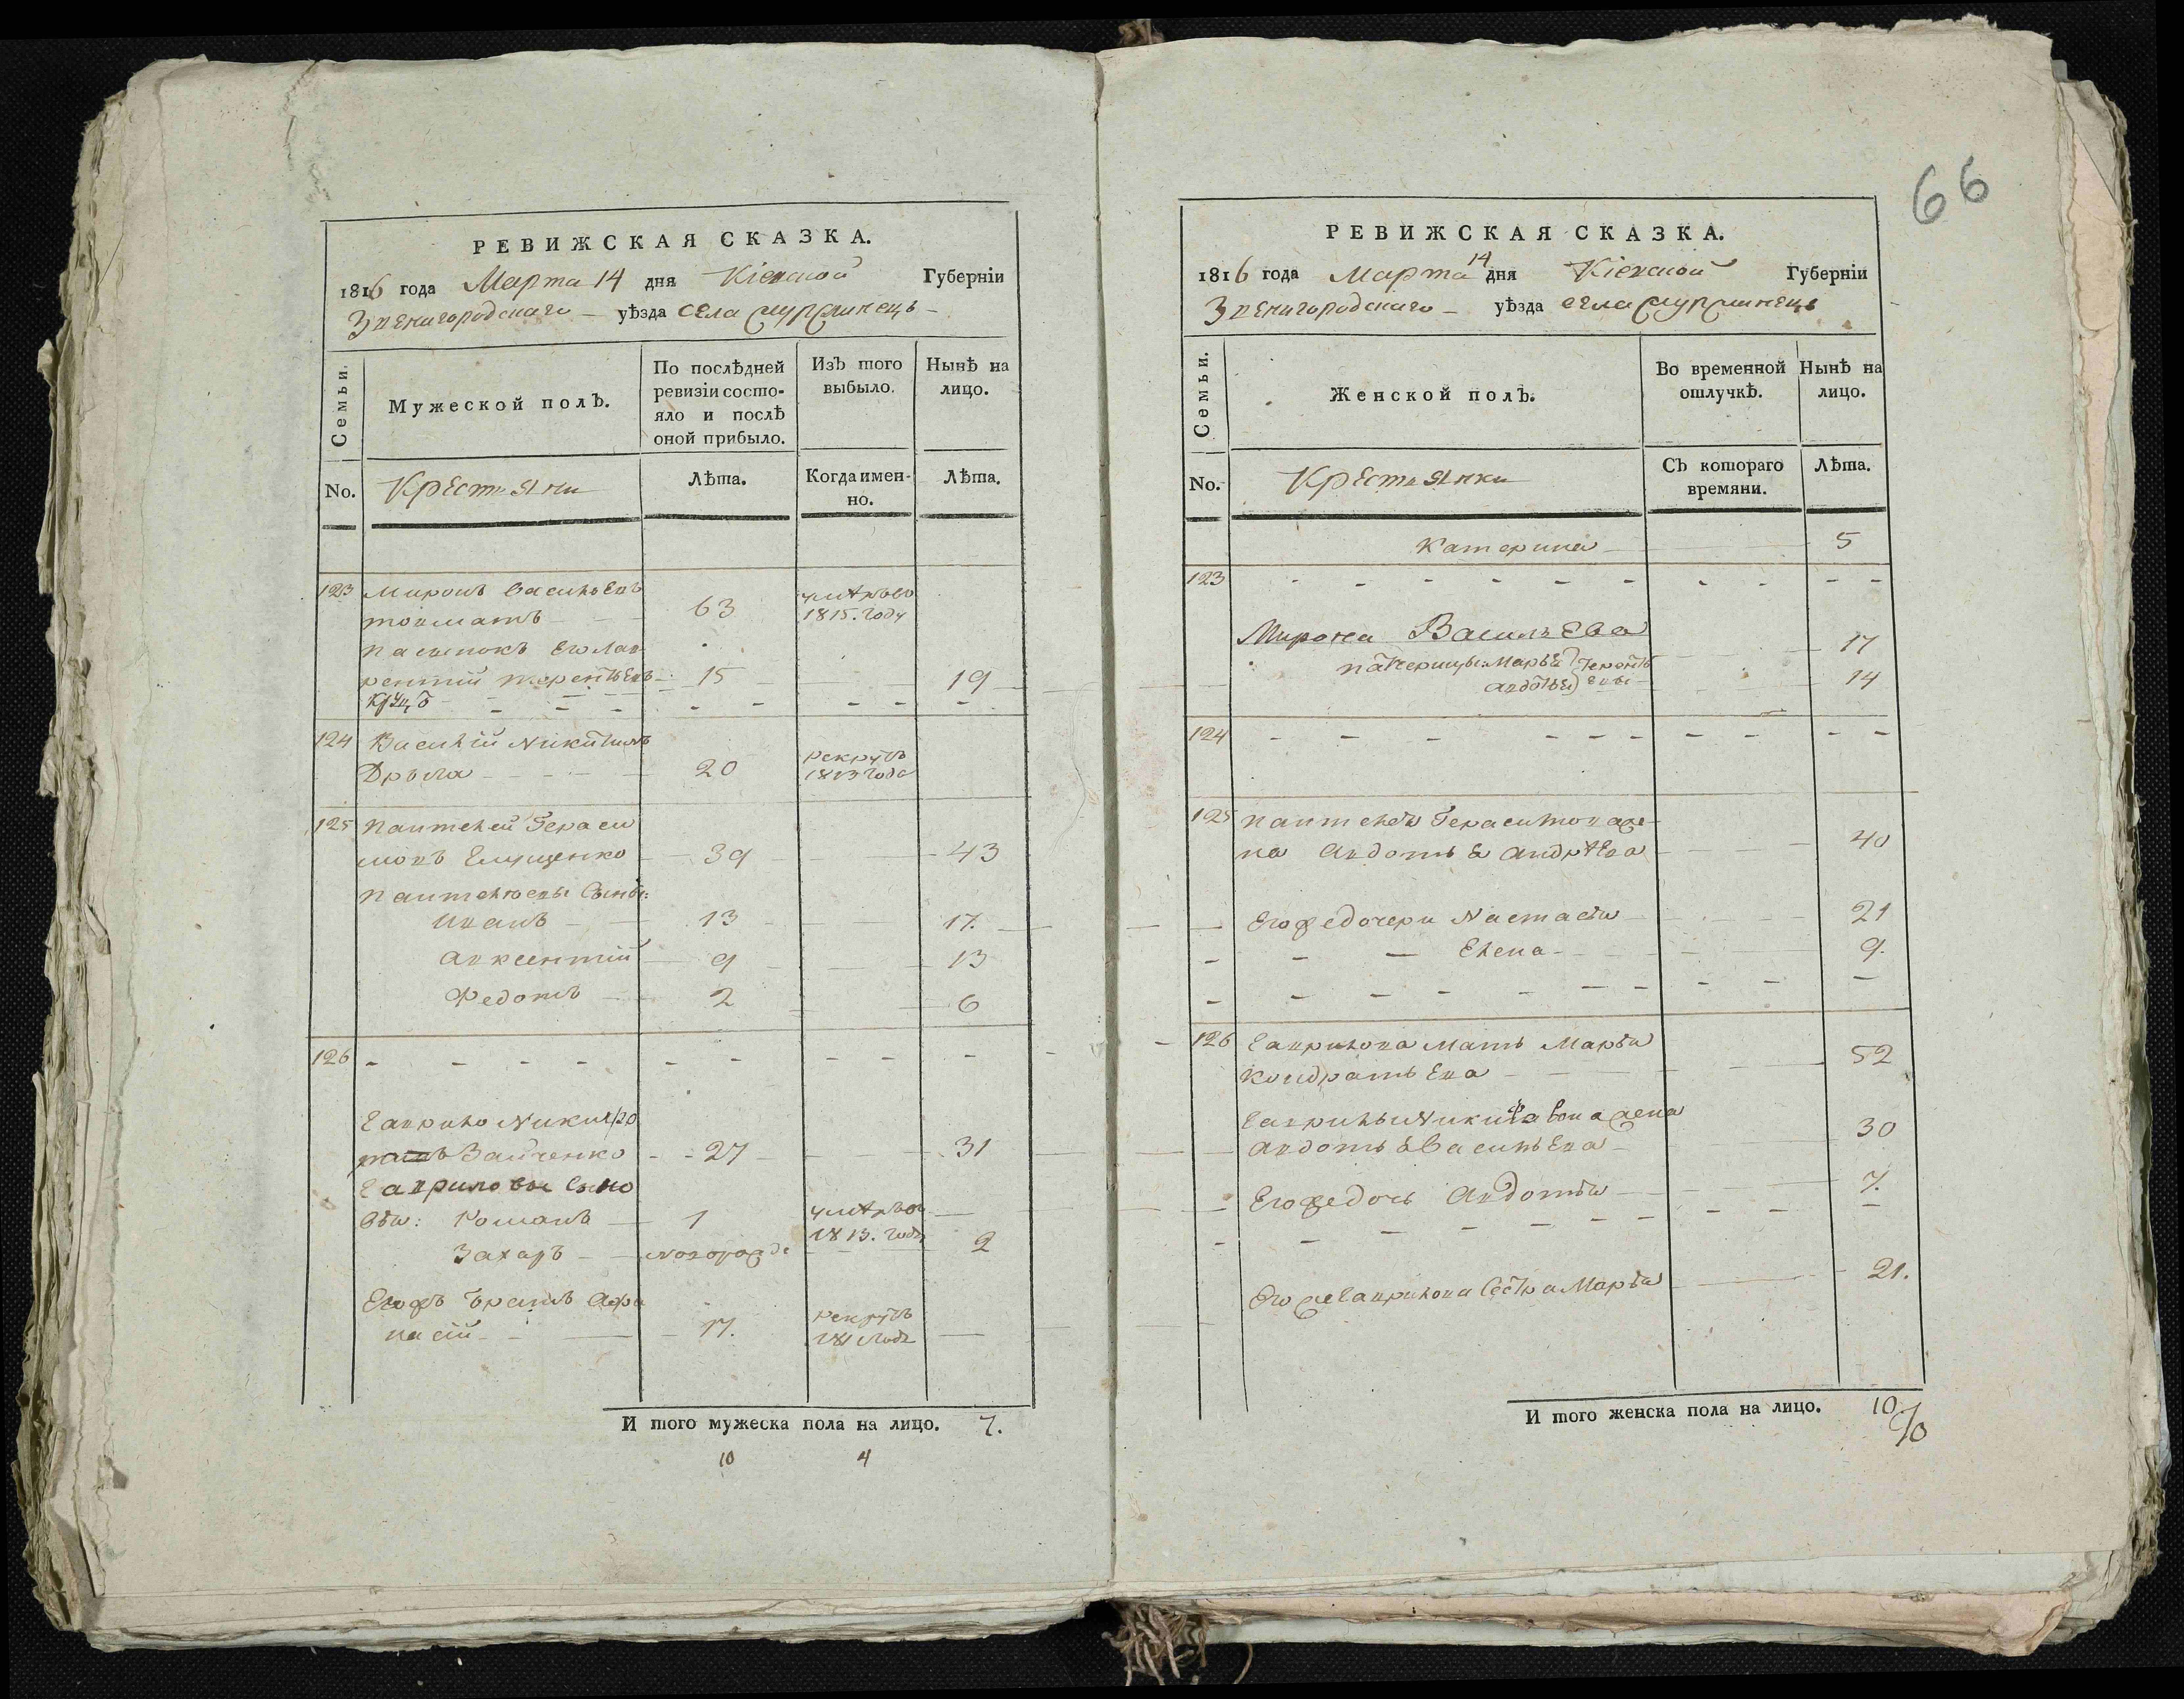 РЕВИЖСКАЯ СКАЗКА.
1816 года Марта 14 дня Кіевской Губерніи
Звенигородскаго уѣзда села
Семьи.
Мужеской полЪ.
По послѣдней ревизіи состояло и послѣ оной прибыло.
ИзЪ того выбыло.
Нынѣ на лицо.
No. Крестьяни
Лѣта.
Когда именно.
Лѣта.
123 Миронъ Васильевъ
63 умѣръ во 1815. году
пасынокъ Его Лав
рентій терентьевъ 15 19
124 Василій Никитинъ
Дрыла 20 рекрутъ 1813 года
125 Пантелей Гераси
мовъ Емущенко 39 43
Пантелѣевы Сыны:
Иванъ 13 17.
Авксентій 9 13
Федотъ 2 6
126
Гаврило Никиѳо
ровъ Зайченко 27 31
Гавриловы Сыно
вья: Романъ 1 умѣръ 1813. году
Захаръ новорожде 2
Егожъ братъ Афа
насій 17. рекрутъ 181 года
И того мужеска пола на лицо. 7.
10 4
66
РЕВИЖСКАЯ СКАЗКА.
1816 года Марта 14 дня Кіевской Губерніи
Звенигородскаго уѣзда села
Семьи.
Женской полЪ.
Во временной отлучкѣ.
Нынѣ на лицо.
No. Крестьянки
СЪ котораго времяни.
Лѣта.
Катерина 5
123
Мирона Васильева
падчерицы Марья 17
Авдотья 14
124
125 Пантелея Герасимова же
на Авдотья Андрѣева 40
Его же дочери Настасія 21
Елена 9.
126 Гаврилова Мать Марья
Кондратьева 52
Гаврилы Никифорова жена
Авдотья Васильева 30
Его же дочь Авдотья 7.
Его же Гаврилова Сестра Марья 21.
И того женска пола на лицо. 10